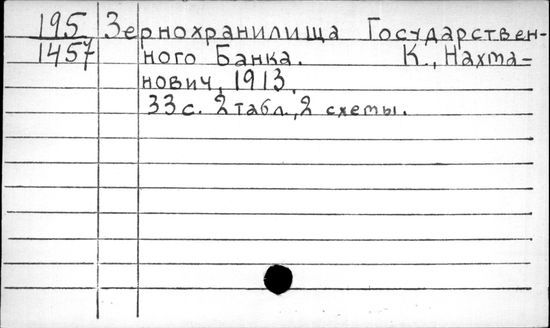 195 Зернохранилища Государствен-
1457 ного Банка. К., Нахма-
нович, 1913.
33 с. 2 табл., 2 схемы.